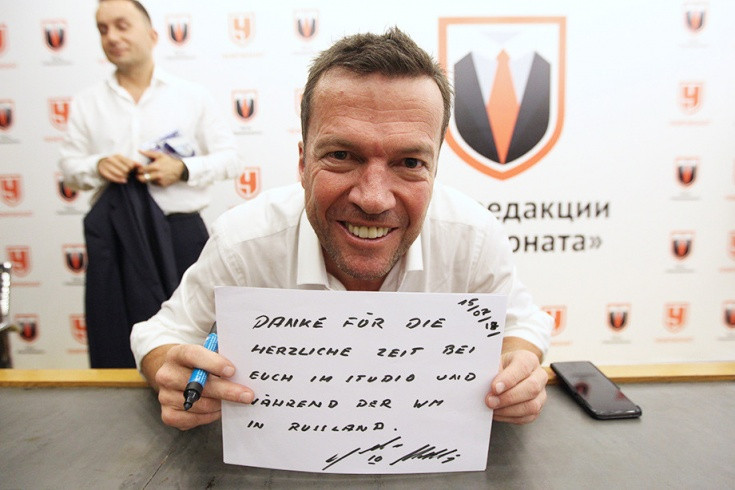 У
едакции
оната»
15/07/18
DANKE FÜR DIE
HERZLICHE ZEIT BEI
EUCH IM STUDIO UND
WÄHREND DER WM
IN RUSSLAND.
10